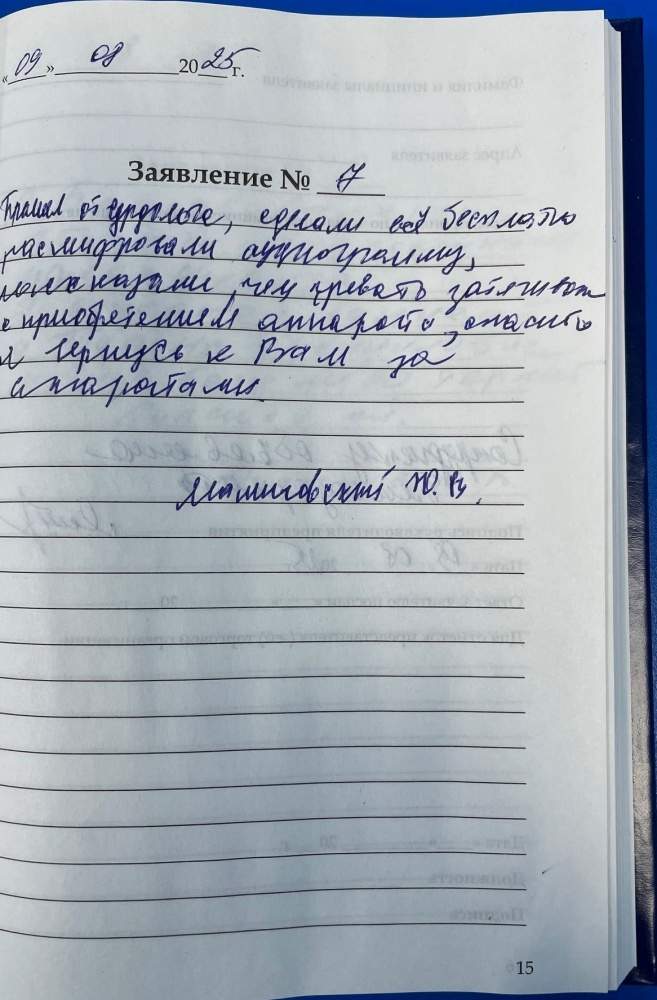 «09» 08 2025г.
Заявление № 7
Пришел от сурдолога, сделали всё бесплатно
расшифровали аудиограмму,
рассказали чем чревато затягивать
с приобретением аппарата, спасибо
я вернусь к Вам за
аппаратами.
Ю.В.
15